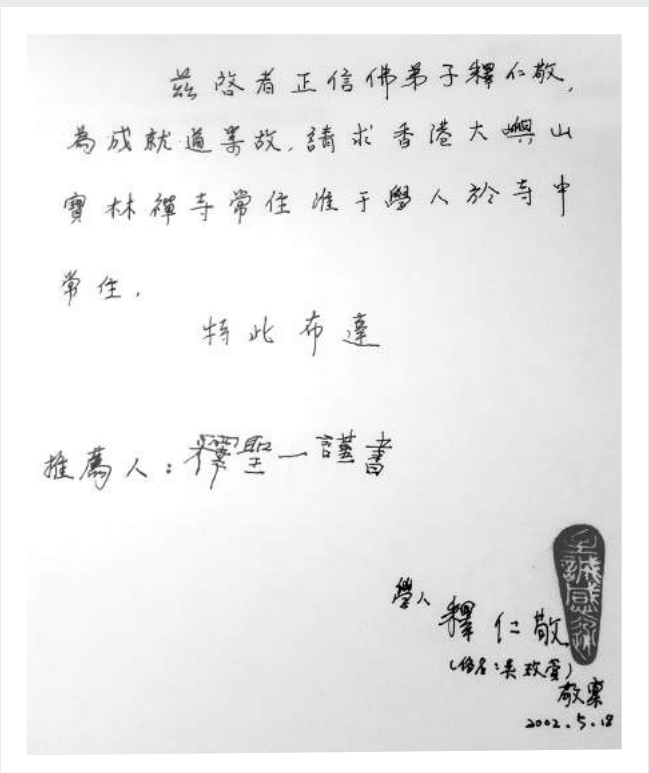 茲啓者正信佛弟子釋仁敬,
為成就道業故,請求香港大嶼山
寶林禪寺常住准于學人於寺中
常住.
特此布達
推薦人:釋聖一謹書
學人
釋仁敬
(俗名:吳玫萱)
敬稟
2002.5.18
至誠感通